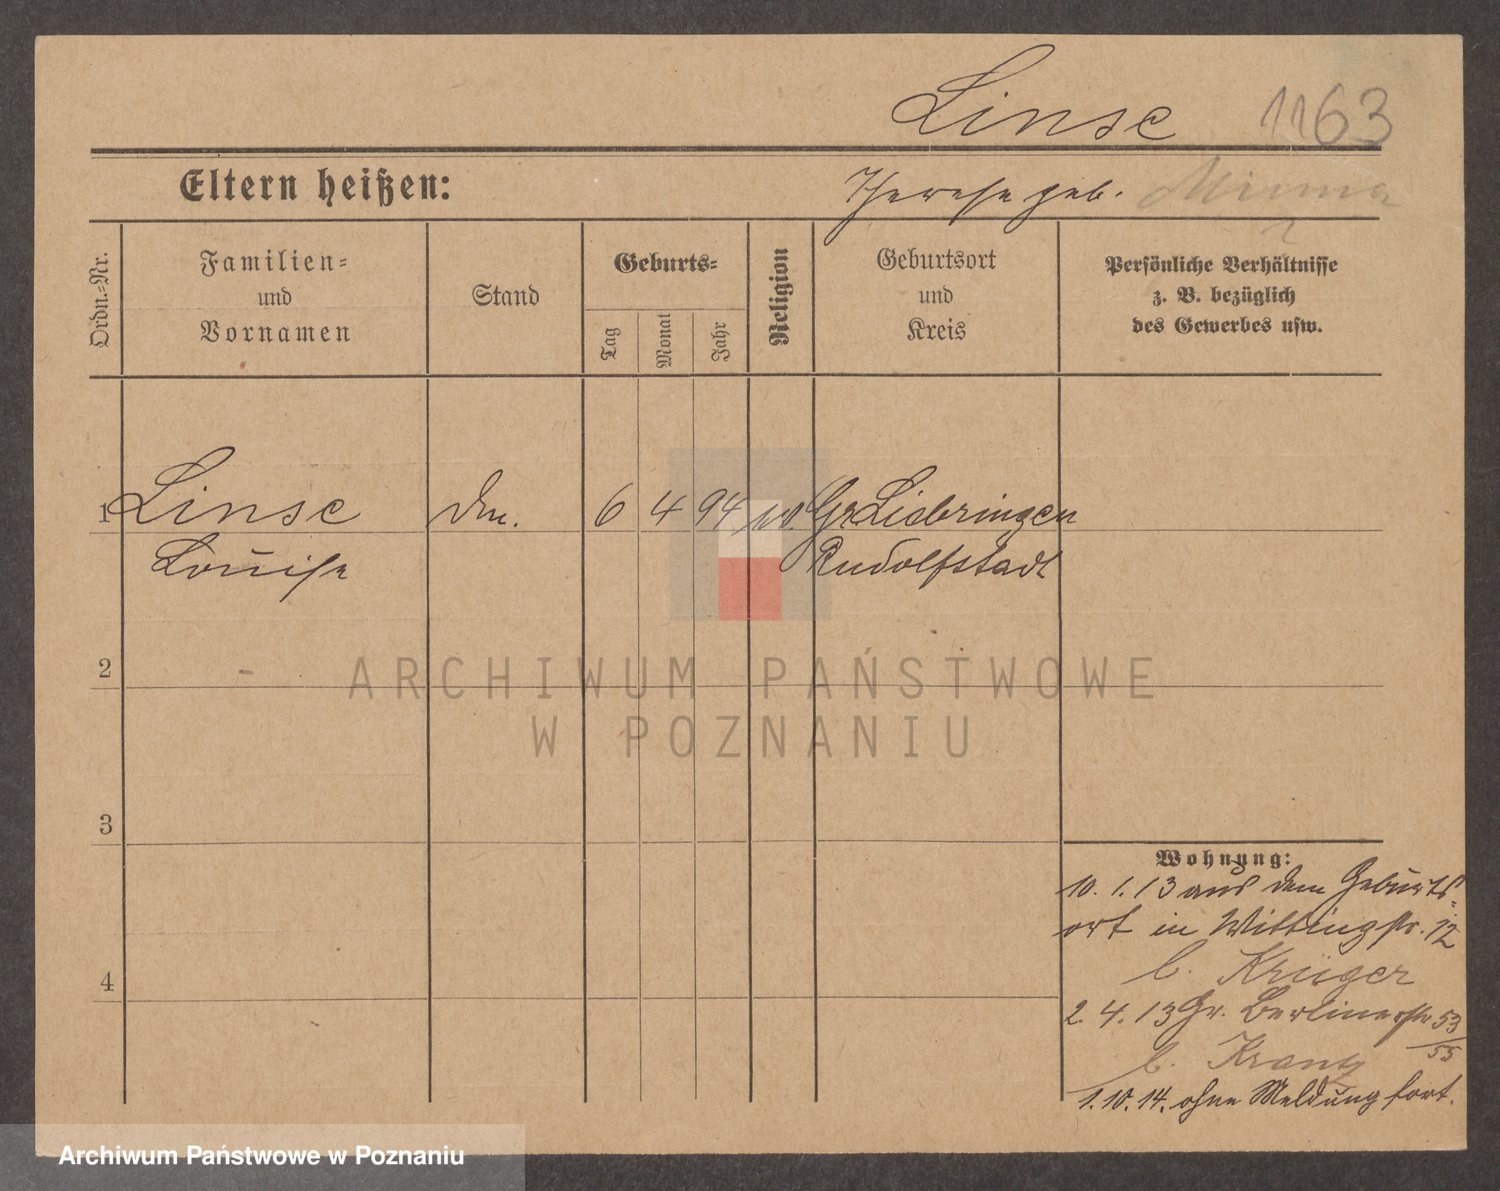 Linse 1163
Eltern heißen: Therese geb. Minna
Ordn.-Nr.
Familien-
und
Vornamen
Stand
Geburts-
Tag
Monat
Jahr
Religion
Geburtsort
und
Kreis
Persönliche Verhältnisse
z. B. bezüglich
des Gewerbes usw.
1 Linse 6 4 94 Gr Liebringen
Louise Rudolfstadt
2
3
4
Wohnung:
10. 1. 13 aus dem Geburts-
ort in Wittingstr. 12
b. Krüger
2. 4. 13 Gr. Berlinerstr. 53/55
b. Krantz
1. 10. 14. ohne Meldung fort.
ARCHIWUM PAŃSTWOWE
W POZNANIU
Archiwum Państwowe w Poznaniu